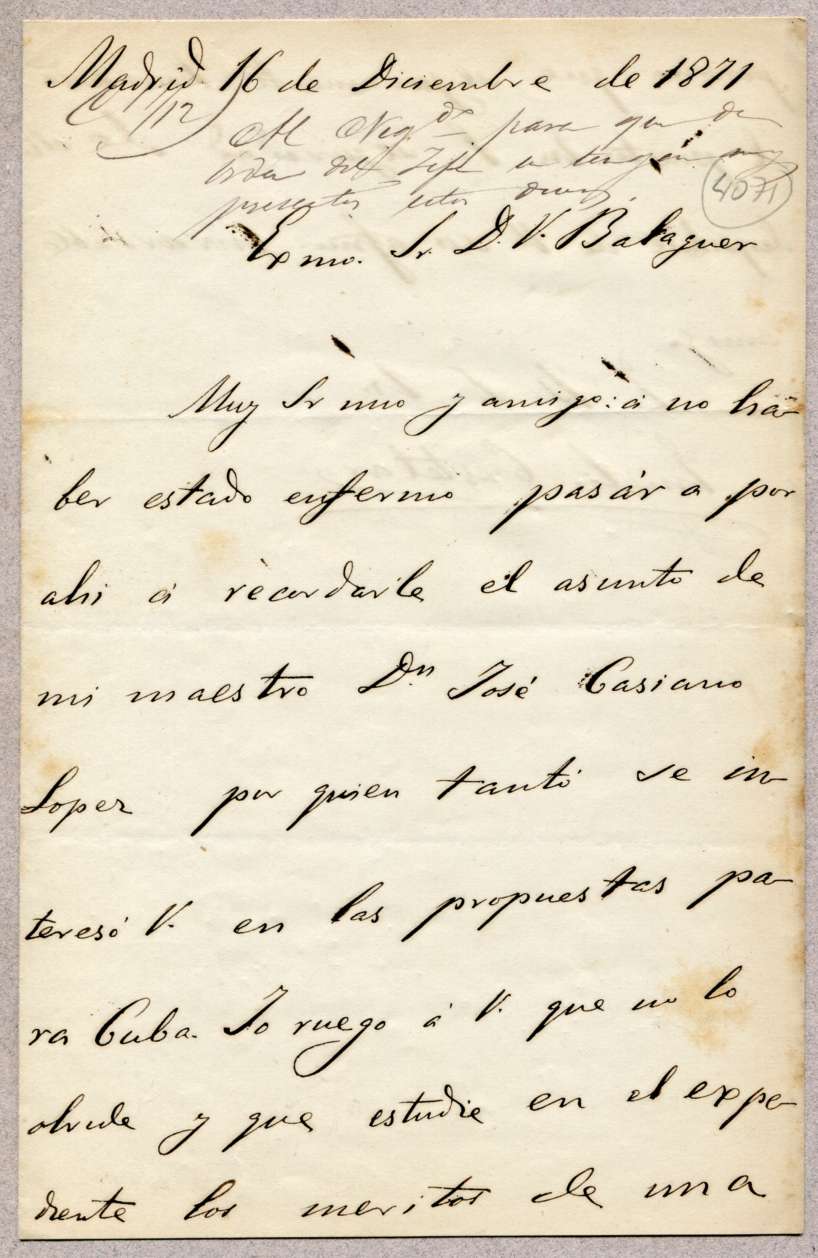 Madrid 16 de Diciembre de 1871
/12
Al Neg.do para que de
orden del Jefe se tengan muy
presentes estos
4071
Exmo. Sr. D. V. Balaguer
Muy Sr mio y amigo: á no ha-
ber estado enfermo pasára por
ahi á recordarle el asunto de
mi maestro Dn José Casiano
Lopez por quien tanto se in-
teresó V. en las propuestas pa-
ra Cuba. Yo ruego á V. que no lo
olvide y que estudie en el expe-
diente los meritos de una